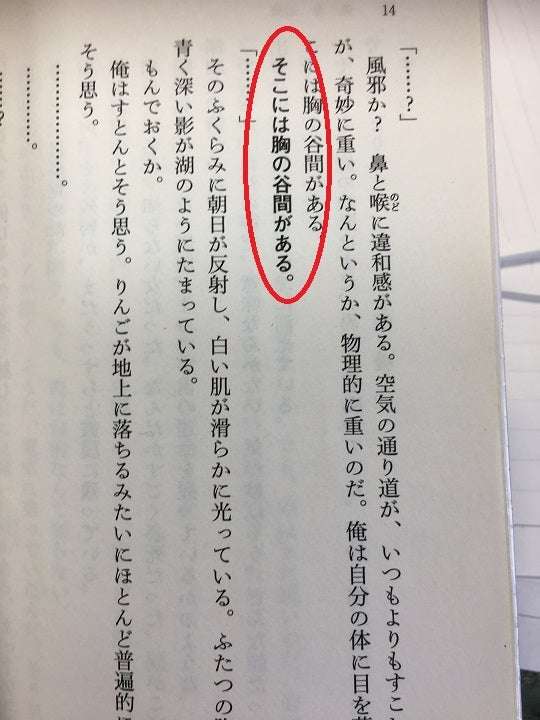 14
「……？」
風邪か？　鼻と喉に違和感がある。空気の通り道が、いつもよりもすこ
のど
が、奇妙に重い。なんというか、物理的に重いのだ。俺は自分の体に目を
こには胸の谷間がある
そこには胸の谷間がある。
「……？」
そのふくらみに朝日が反射し、白い肌が滑らかに光っている。ふたつの
青く深い影が湖のようにたまっている。
もんでおくか。
俺はすとんとそう思う。りんごが地上に落ちるみたいにほとんど普遍的
そう思う。
……………。
……………。